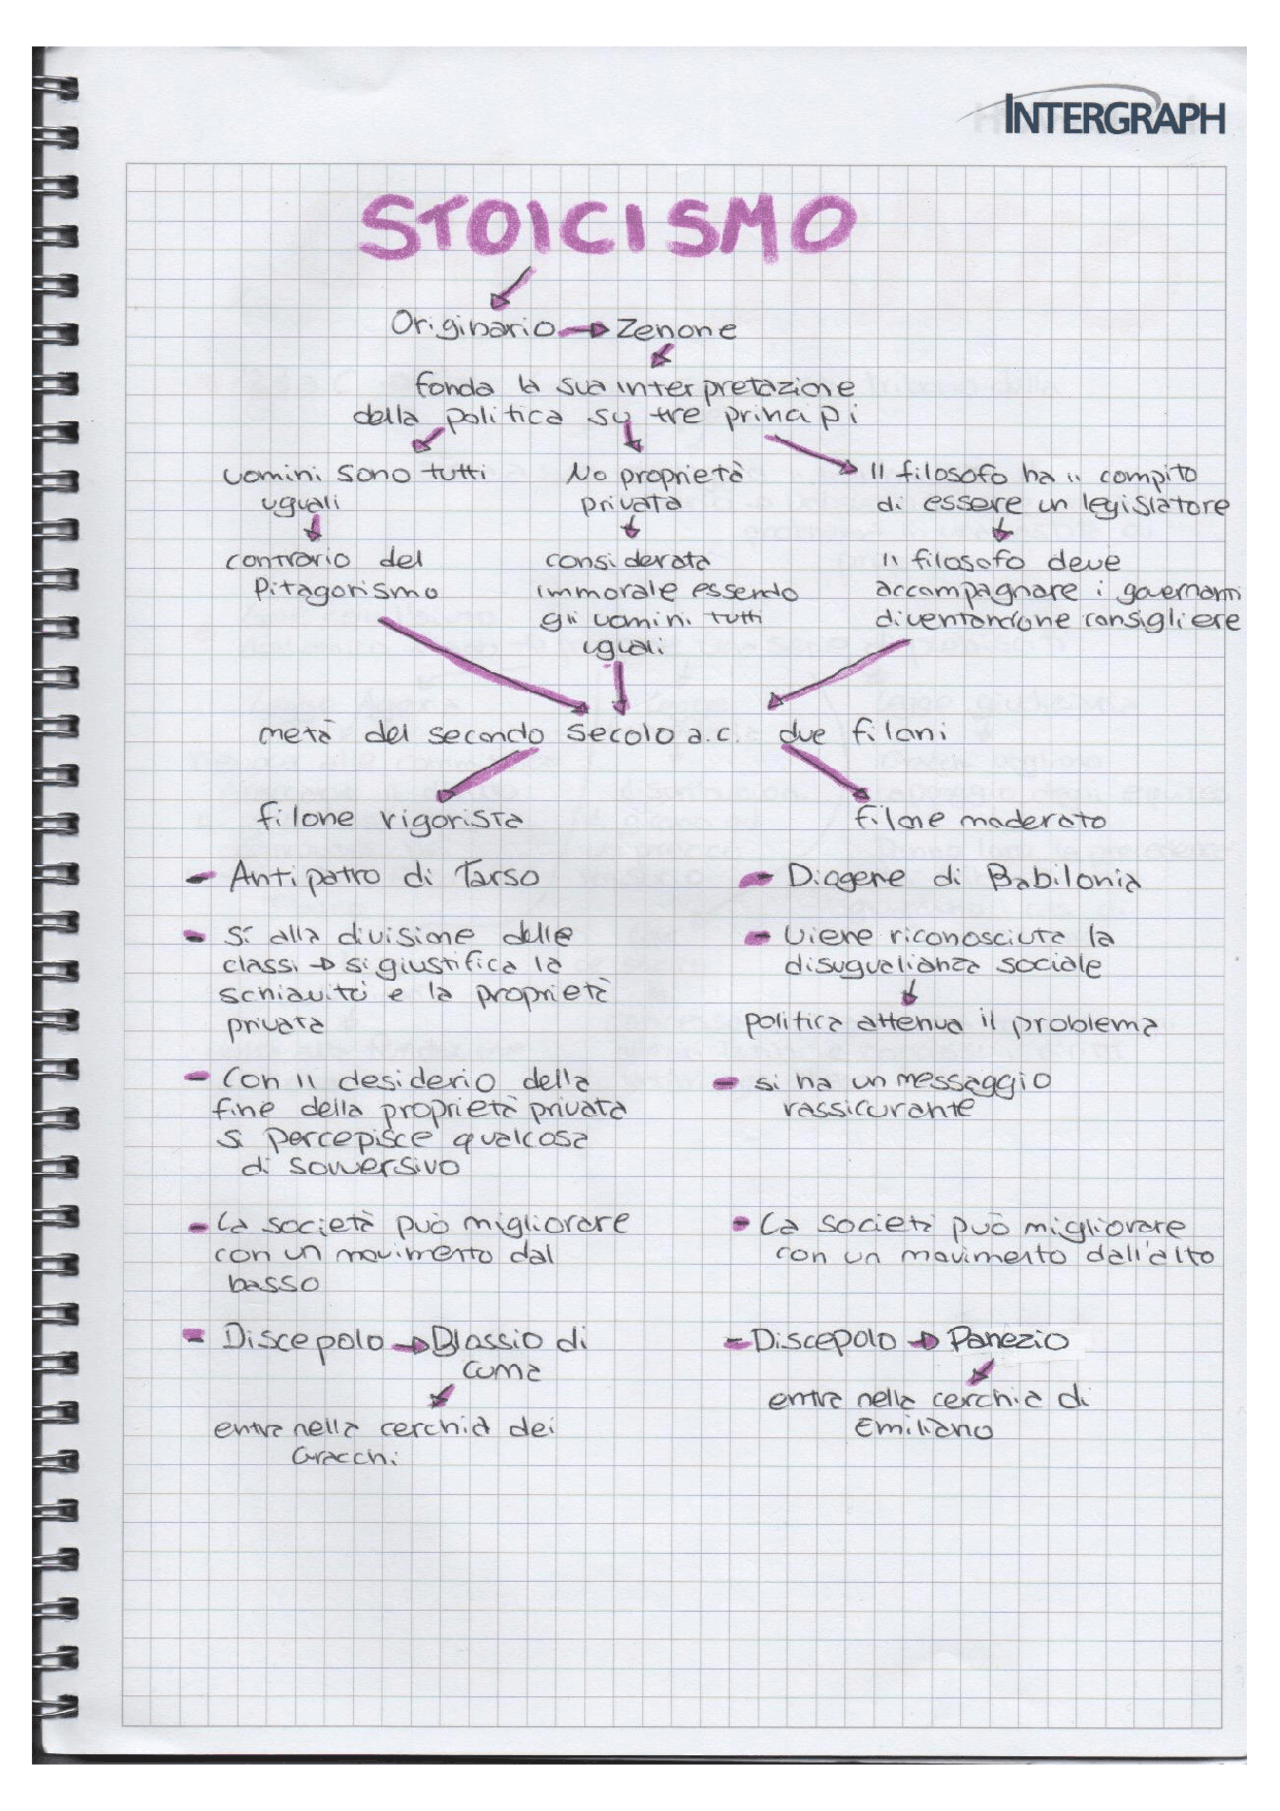 INTERGRAPH
STOICISMO
Originario → Zenone
fonda la sua interpretazione
della politica su tre principi
uomini sono tutti
uguali
contrario del
Pitagorismo
No proprietà
privata
considerata
immorale essendo
gli uomini tutti
uguali
Il filosofo ha il compito
di essere un legislatore
Il filosofo deve
accompagnare i governanti
diventandone consigliere
metà del secondo secolo a.c. due filoni
filone rigorista
- Antipatro di Tarso
- Sì alla divisione delle
classi → si giustifica la
schiavitù e la proprietà
privata
- Con il desiderio della
fine della proprietà privata
si percepisce qualcosa
di sovversivo
- La società può migliorare
con un movimento dal
basso
- Discepolo → Blossio di
Cuma
entra nella cerchia dei
Gracchi
filone moderato
- Diogene di Babilonia
- Viene riconosciuta la
disuguaglianza sociale
politica attenua il problema
- si ha un messaggio
rassicurante
- La società può migliorare
con un movimento dall'alto
- Discepolo → Panezio
entra nella cerchia di
Emiliano